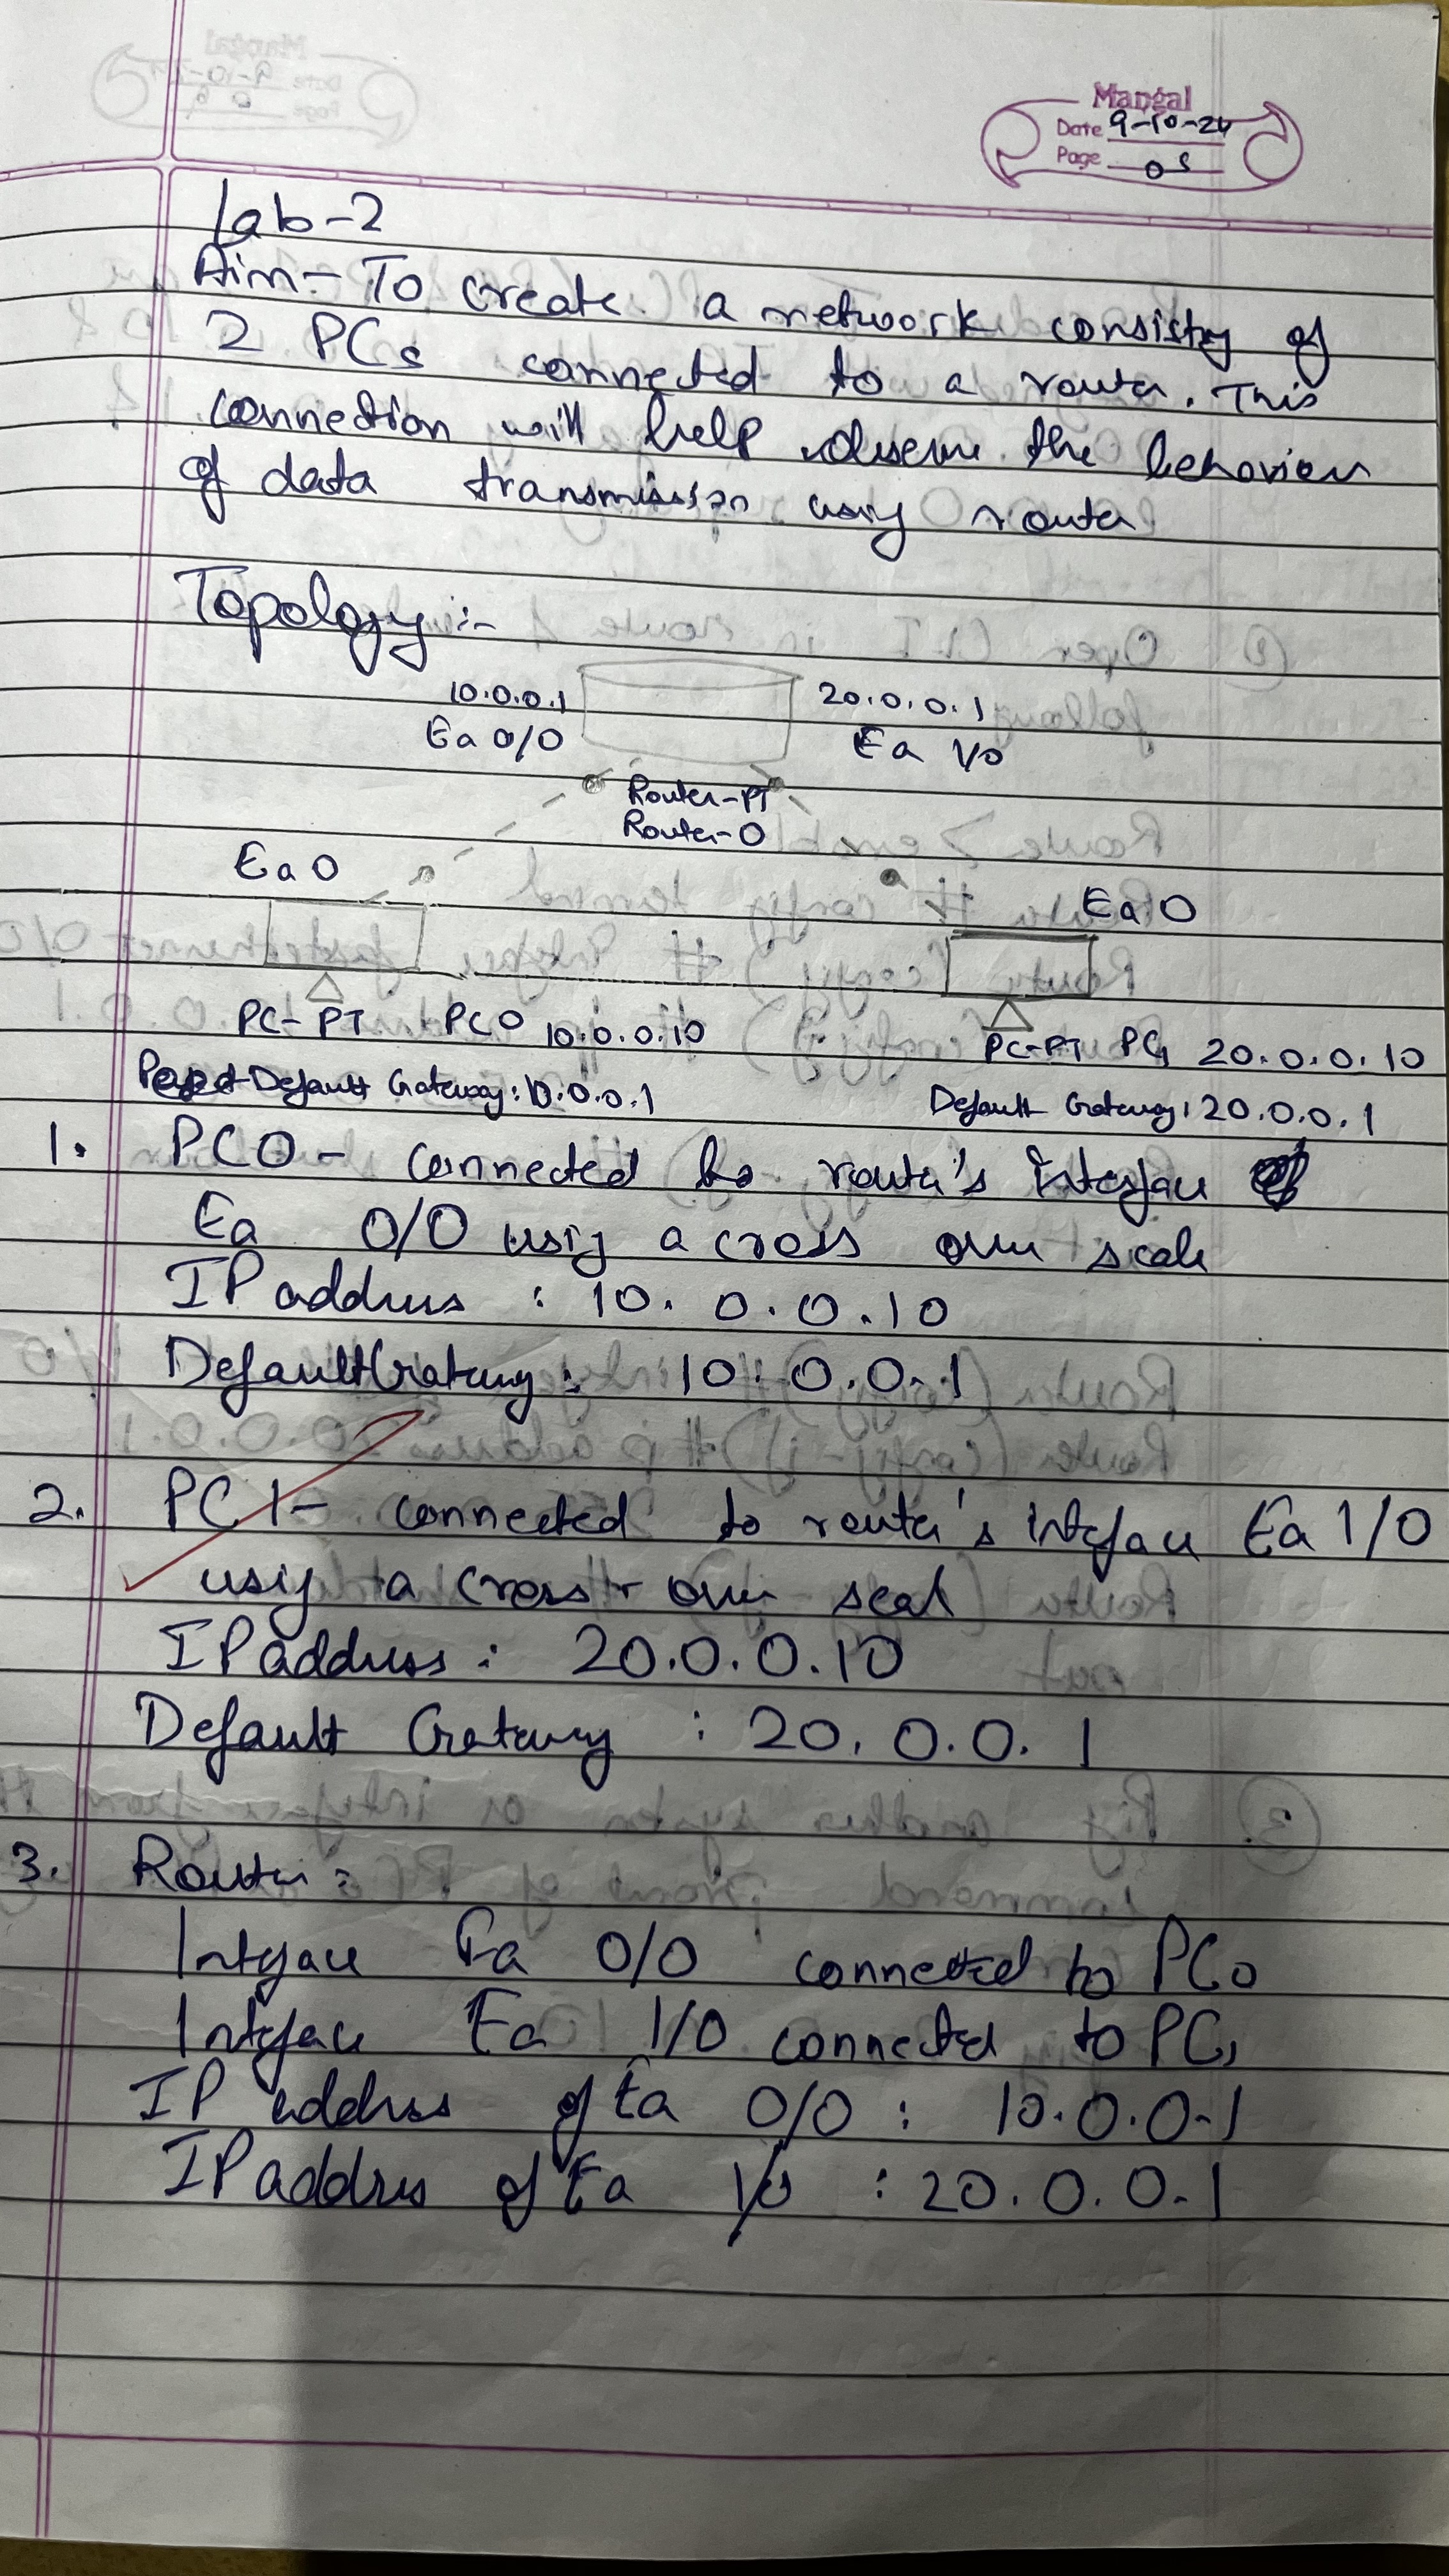 Mangal
Date 9-10-24
Page 05
Lab-2
Aim- To create a network consisty of
2 PCs connected to a router. This
connection will help observe the behaviour
of data transmission using router
Topology:-
10.0.0.1
20.0.0.1
Ea 0/0
Ea 1/0
Router-PT
Router-0
Ea 0
Ea 0
PC-PT PC0 10.0.0.10
PC-PT PC1 20.0.0.10
Default Gateway: 10.0.0.1
Default Gateway: 20.0.0.1
1. PC0 - connected to router's interface
Ea 0/0 using a cross over scale
IP address : 10.0.0.10
Default Gateway: 10.0.0.1
2. PC1- connected to router's interface Ea 1/0
using a cross-over seal
IP address: 20.0.0.10
Default Gateway : 20.0.0.1
3. Router:
Interface Fa 0/0 connected to PC0
Interface Ea 1/0 connected to PC1
IP address of Ea 0/0 : 10.0.0.1
IP addres of Ea 1/0 : 20.0.0.1